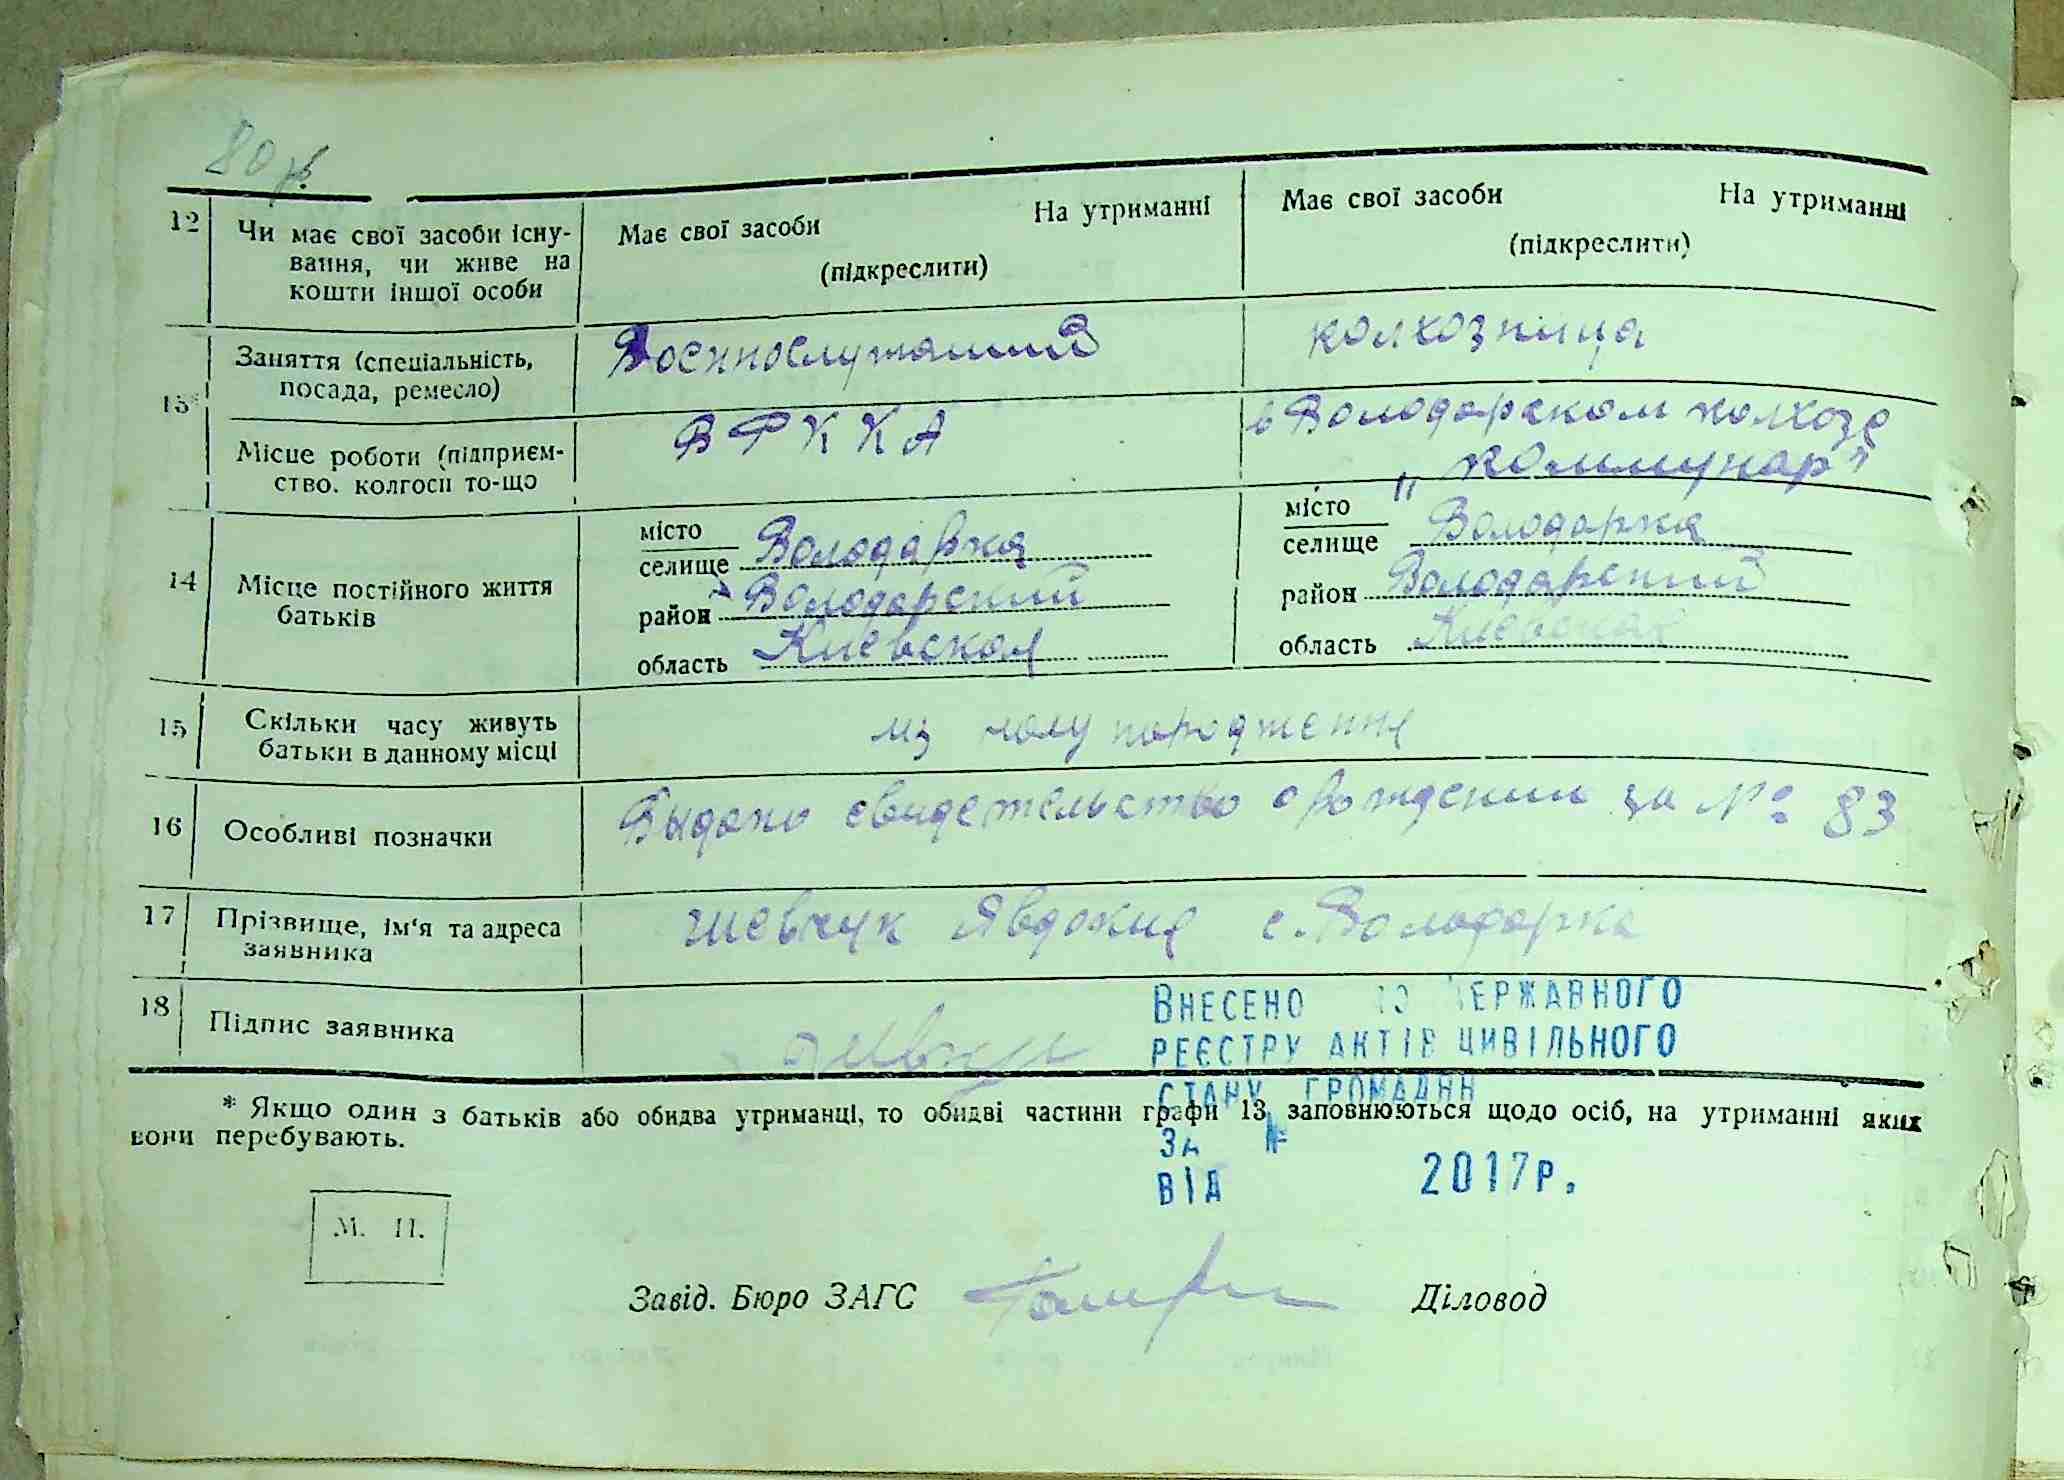 80
12
Чи має свої засоби існу-
вання, чи живе на
кошти іншої особи
Має свої засоби На утриманні
(підкреслити)
Має свої засоби На утриманні
(підкреслити)
13*
Заняття (спеціальність,
посада, ремесло)
Военнослужащий
колхозница
Місце роботи (підприєм-
ство. колгосп то-що
В РККА
в Володарском колхозе
"Коммунар"
14
Місце постійного життя
батьків
місто
селище Володарка
район Володарский
область Киевская
місто
селище Володарка
район Володарский
область Киевская
15
Скільки часу живуть
батьки в данному місці
народження
16
Особливі позначки
Выдано свидетельство о рождении за № 83
17
Прізвище, ім'я та адреса
заявника
Шевчук Явдокия с. Володарка
18
Підпис заявника
ВНЕСЕНО ДО ДЕРЖАВНОГО
РЕЄСТРУ АКТІВ ЦИВІЛЬНОГО
СТАНУ ГРОМАДЯН
ЗА №
ВІД 2017р.
* Якщо один з батьків або обидва утриманці, то обидві частини графи 13 заповнюються щодо осіб, на утриманні яких
вони перебувають.
М. П.
Завід. Бюро ЗАГС Діловод